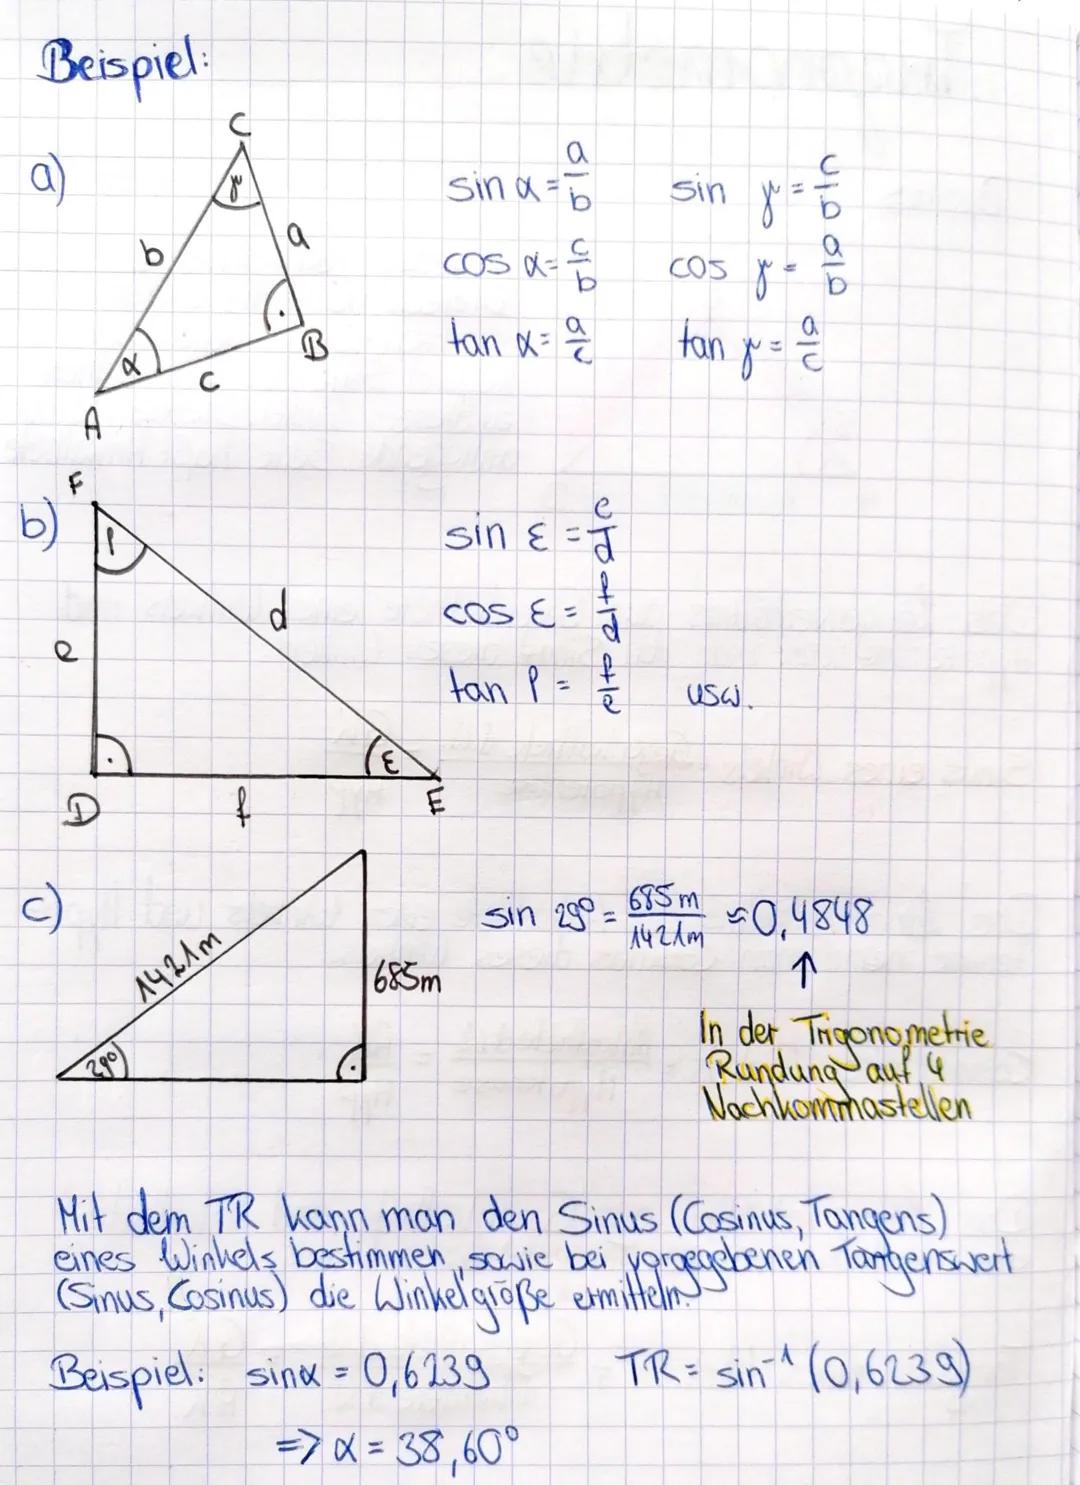 Beispiel:
a)
C
γ
b
a
α
B
c
A
sin α = a/b sin γ = c/b
cos α = c/b cos γ = a/b
tan α = a/c tan γ = a/c
b)
F
ρ
e
d
ε
D
f
E
sin ε = e/d
cos ε = f/d
tan ρ = f/e usw.
c)
1421m
685m
29°
sin 29° = 685m/1421m ≈ 0,4848
↑
In der Trigonometrie
Rundung auf 4
Nachkommastellen
Mit dem TR kann man den Sinus (Cosinus, Tangens)
eines Winkels bestimmen, sowie bei vorgegebenen Tangenswert
(Sinus, Cosinus) die Winkelgröße ermitteln.
Beispiel: sinα = 0,6239 TR = sin⁻¹ (0,6239)
=> α = 38,60°